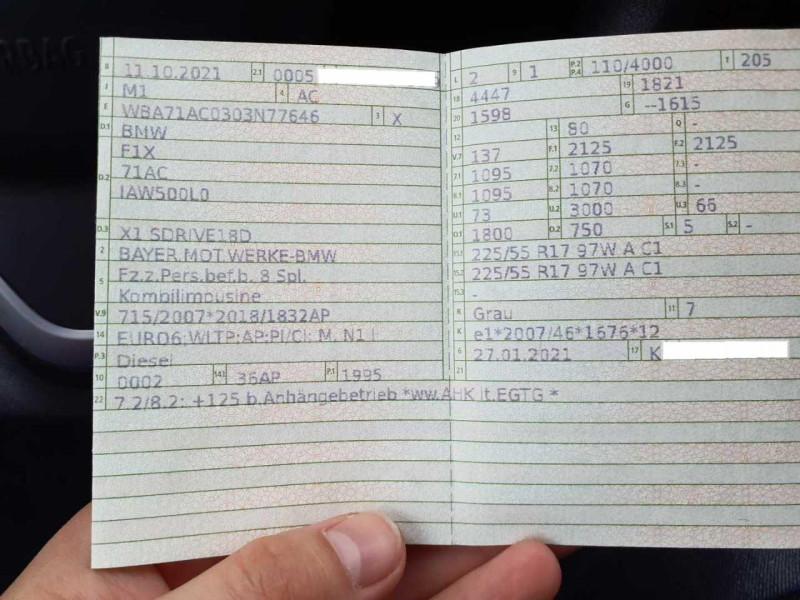 B 11.10.2021 2.1 0005
J M1 4 AC
E WBA71AC0303N77646 3 X
D.1 BMW
F1X
D.2 71AC
IAW500L0
D.3 X1 SDRIVE18D
2 BAYER.MOT.WERKE-BMW
5 Fz.z.Pers.bef.b. 8 Spl.
Kombilimousine
V.9 715/2007*2018/1832AP
14 EURO6;WLTP;AP;PI/CI; M, N1 I
P.3 Diesel
10 0002 14.1 36AP P.1 1995
22 7.2/8.2: +125 b.Anhängebetrieb *ww.AHK lt.EGTG *
L 2 9 1 P.2 P.4 110/4000 T 205
18 4447 19 1821
20 1598 G --1615
12 13 80 Q -
V.7 137 F.1 2125 F.2 2125
7.1 1095 7.2 1070 7.3 -
8.1 1095 8.2 1070 8.3 -
U.1 73 U.2 3000 U.3 66
O.1 1800 O.2 750 S.1 5 S.2 -
15.1 225/55 R17 97W A C1
15.2 225/55 R17 97W A C1
15.3 -
R Grau 11 7
K e1*2007/46*1676*12
6 27.01.2021 17 K
21